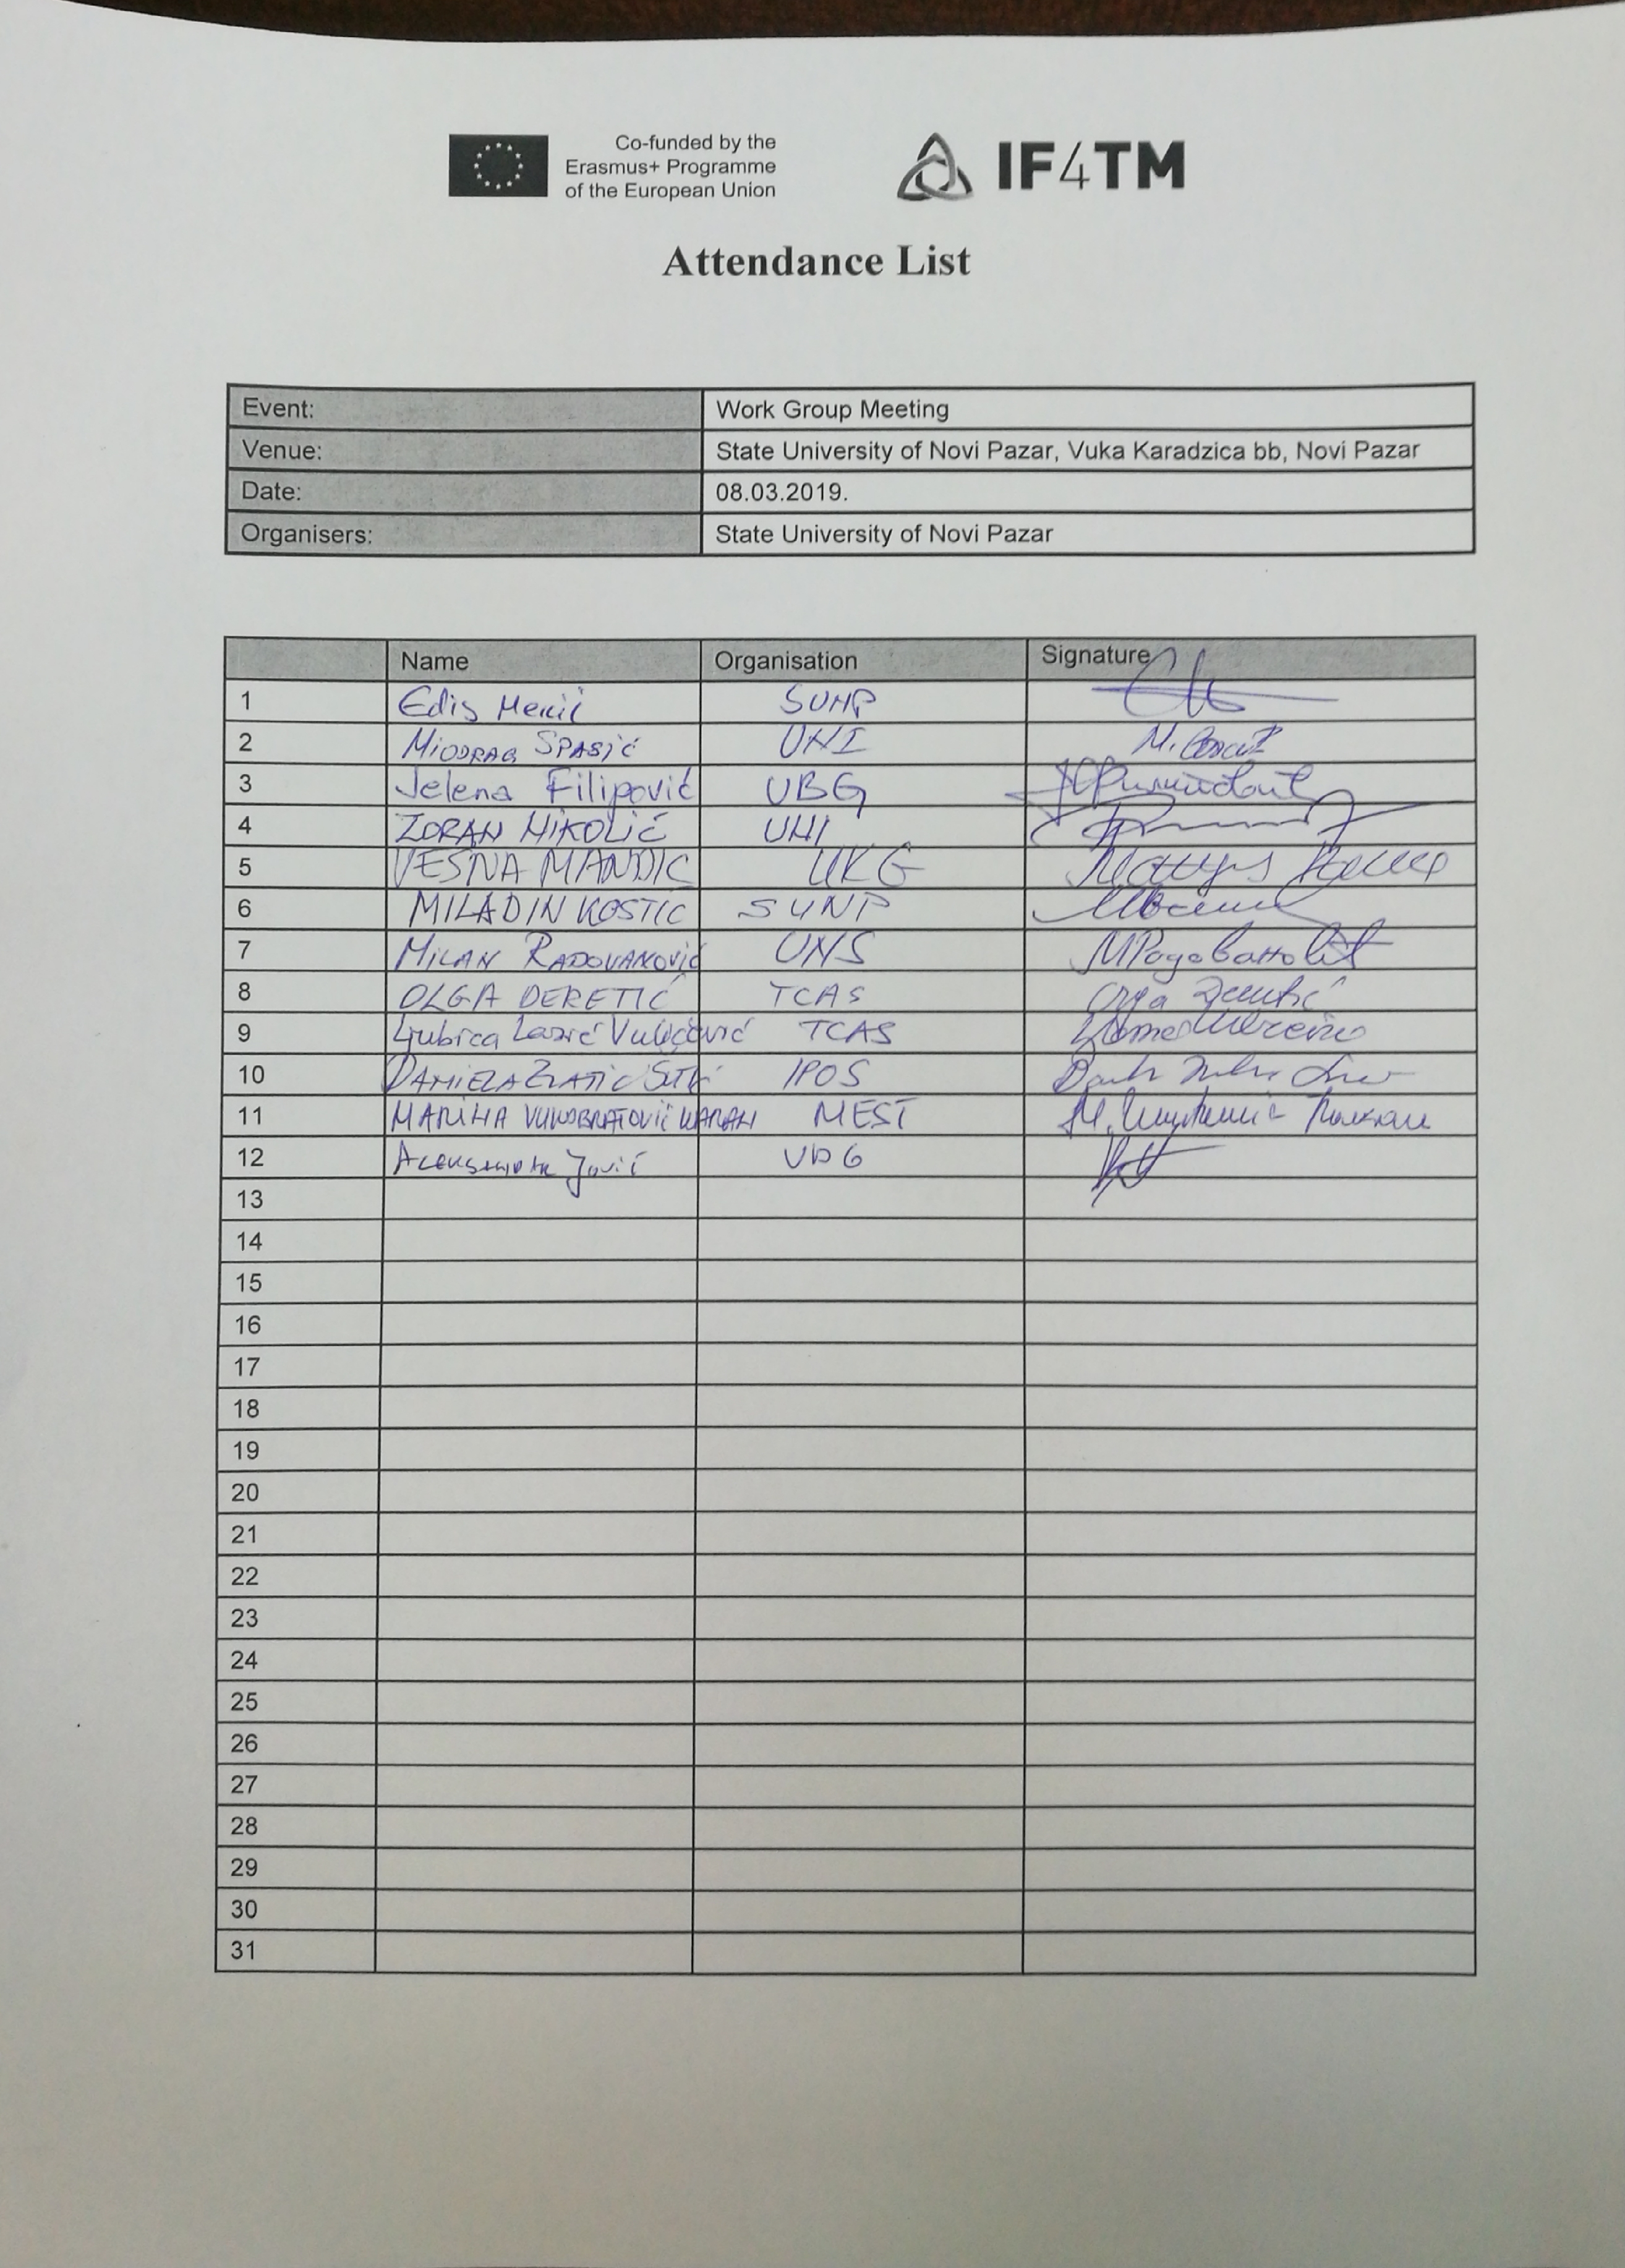 Co-funded by the
Erasmus+ Programme
of the European Union
IF4TM
Attendance List
Event: Work Group Meeting
Venue: State University of Novi Pazar, Vuka Karadzica bb, Novi Pazar
Date: 08.03.2019.
Organisers: State University of Novi Pazar
Name Organisation Signature
1 Edis Mekić SUNP
2 Miodrag Spasić UNI M.
3 Jelena Filipović UBG
4 ZORAN NIKOLIĆ UNI
5 VESNA MANDIC UKG
6 MILADIN KOSTIC SUNP
7 MILAN RADOVANOVIĆ UNS
8 OLGA DERETIĆ TCAS
9 Ljubica Lazić Vulićević TCAS
10 DANIELA ZLATIC IPOS
11 MARINA VUKOBRATOVIĆ MEST
12 Aleksandar Jović UBG
13
14
15
16
17
18
19
20
21
22
23
24
25
26
27
28
29
30
31